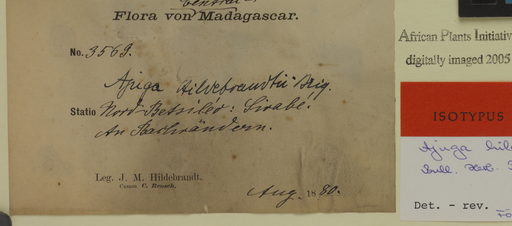 Central-
Flora von Madagascar.
No. 3569.
Ajuga Hildebrandtii Briq.
Statio Nord-Betsiléo: Sirabé.
An Bachrändern.
Leg. J. M. Hildebrandt.
Comm. C. Rensch.
Aug. 1880.
African Plants Initiativ
digitally imaged 2005
ISOTYPUS
Ajuga hil
Bull. Herb.
Det. - rev.